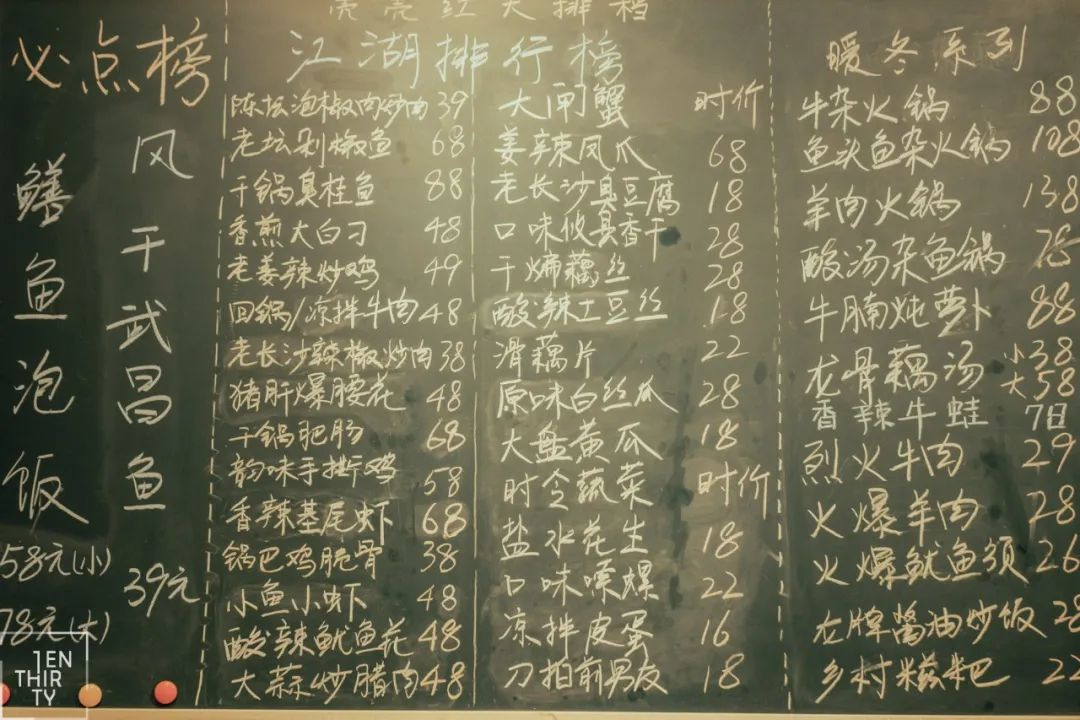 壳壳红大排档
必点榜
鳝鱼泡饭
58元(小)
78元(大)
风干武昌鱼
39元
江湖排行榜
陈坛泡椒肉炒肉 39
老坛剁椒鱼 68
干锅臭桂鱼 88
香煎大白刁 48
老姜辣炒鸡 49
回锅/凉拌牛肉 48
老长沙辣椒炒肉 38
猪肝爆腰花 48
干锅肥肠 68
韵味手撕鸡 58
香辣基尾虾 68
锅巴鸡脆骨 38
小鱼小虾 48
酸辣鱿鱼花 48
大蒜炒腊肉 48
大闸蟹 时价
姜辣凤爪 68
老长沙臭豆腐 18
口味攸县香干 28
干煸藕丝 28
酸辣土豆丝 18
滑藕片 22
原味白丝瓜 28
大盘黄瓜 18
时令蔬菜 时价
盐水花生 18
口味嗦螺 22
凉拌皮蛋 16
刀拍前男友 18
暖冬系列
牛杂火锅 88
鱼头鱼杂火锅 108
羊肉火锅 138
酸汤杂鱼锅 78
牛腩炖萝卜 88
龙骨藕汤 小38 大58
香辣牛蛙
烈火牛肉 29
火爆羊肉 28
火爆鱿鱼须 26
左牌酱油炒饭 28
乡村糍粑 22
1EN
THIR
TY